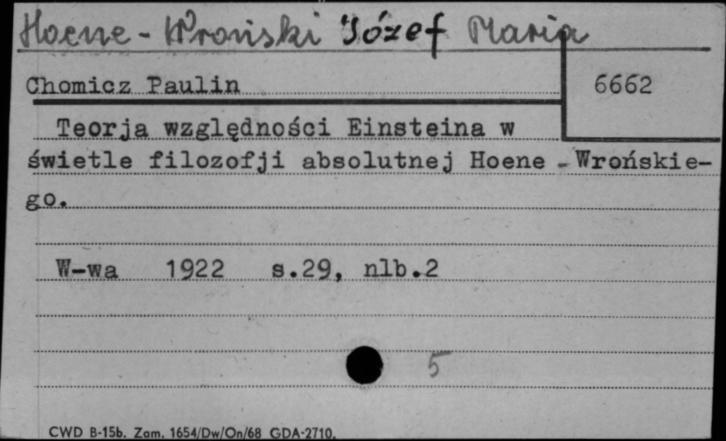 Hoene-Wroński Józef Maria
Chomicz Paulin
6662
Teorja względności Einsteina w
świetle filozofji absolutnej Hoene-Wrońskie-
go.
W-wa 1922 s.29, nlb.2
5
CWD B-15b. Zam. 1654/Dw/On/68 GDA-2710.